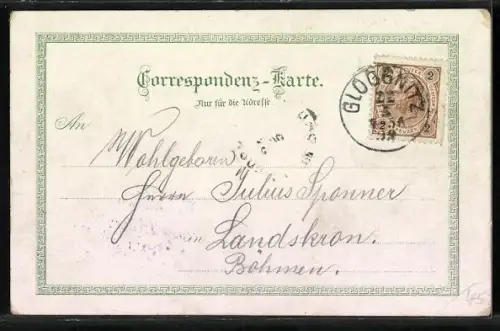 Correspondenz-Karte.
Nur für die Adresse
2
2
GLOGGNITZ
An
Wohlgeboren
Herrn Julius Sponner
Landskron.
Böhmen.